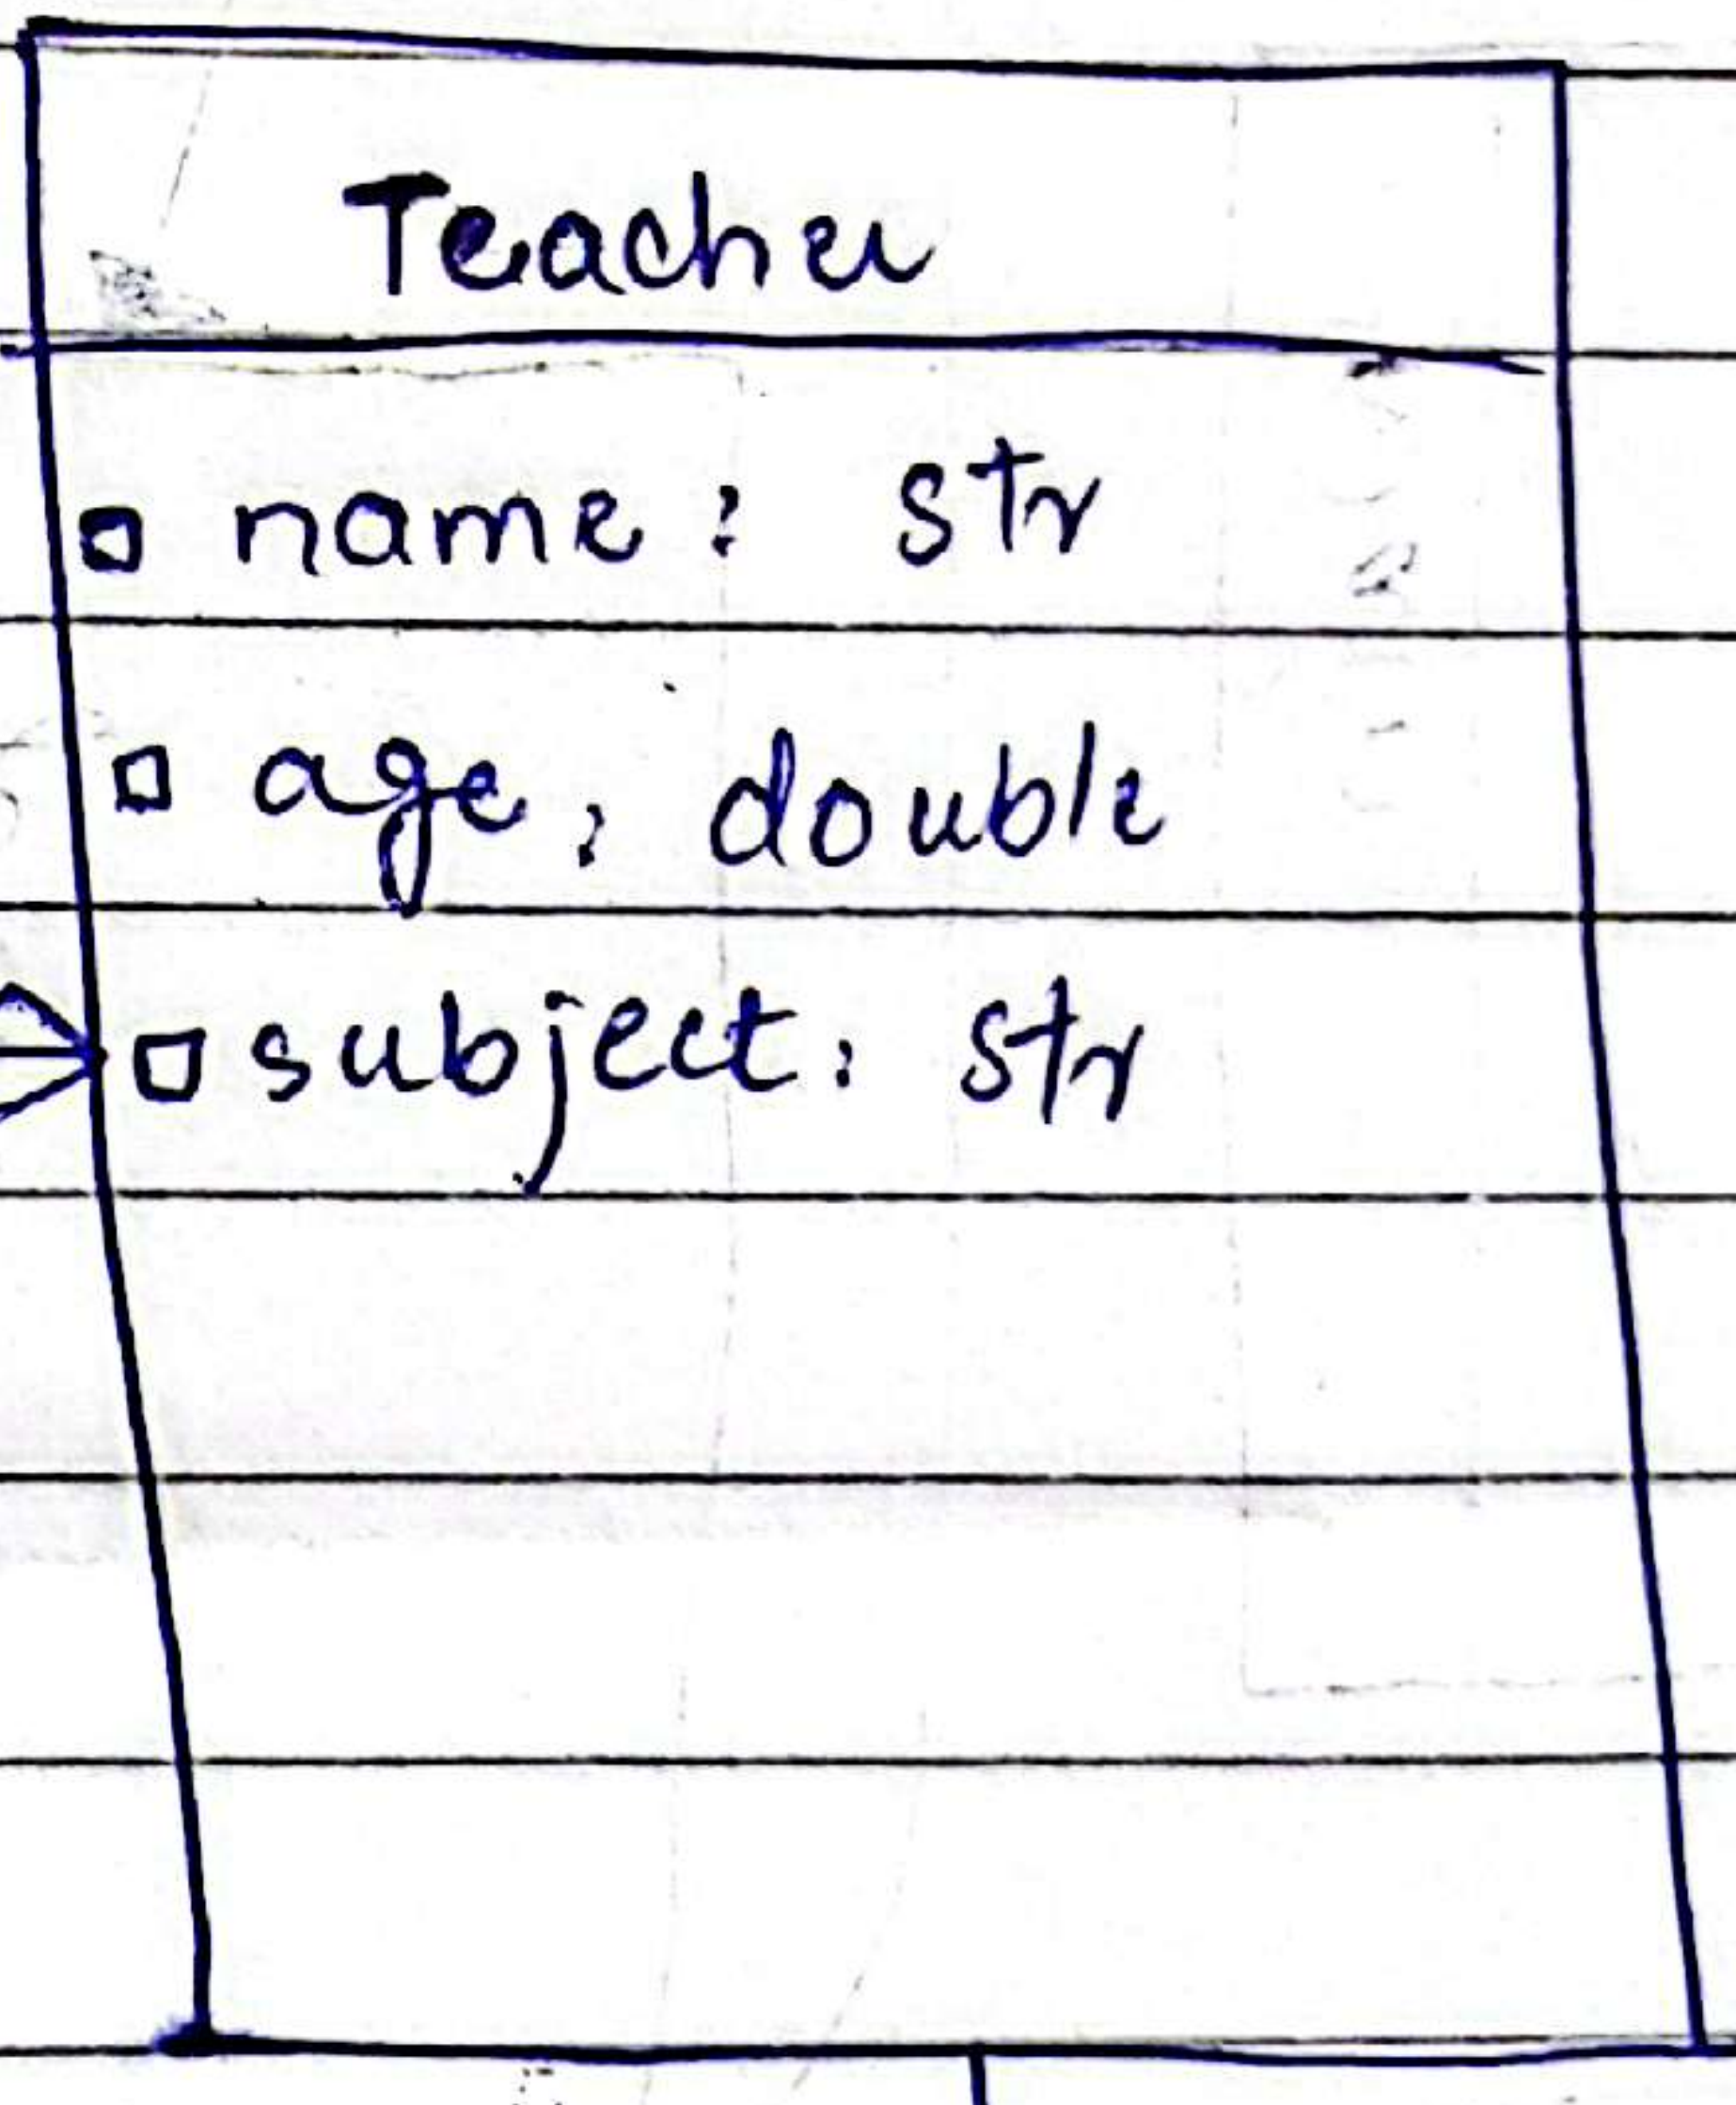 Teacher
name : str
age : double
subject : str